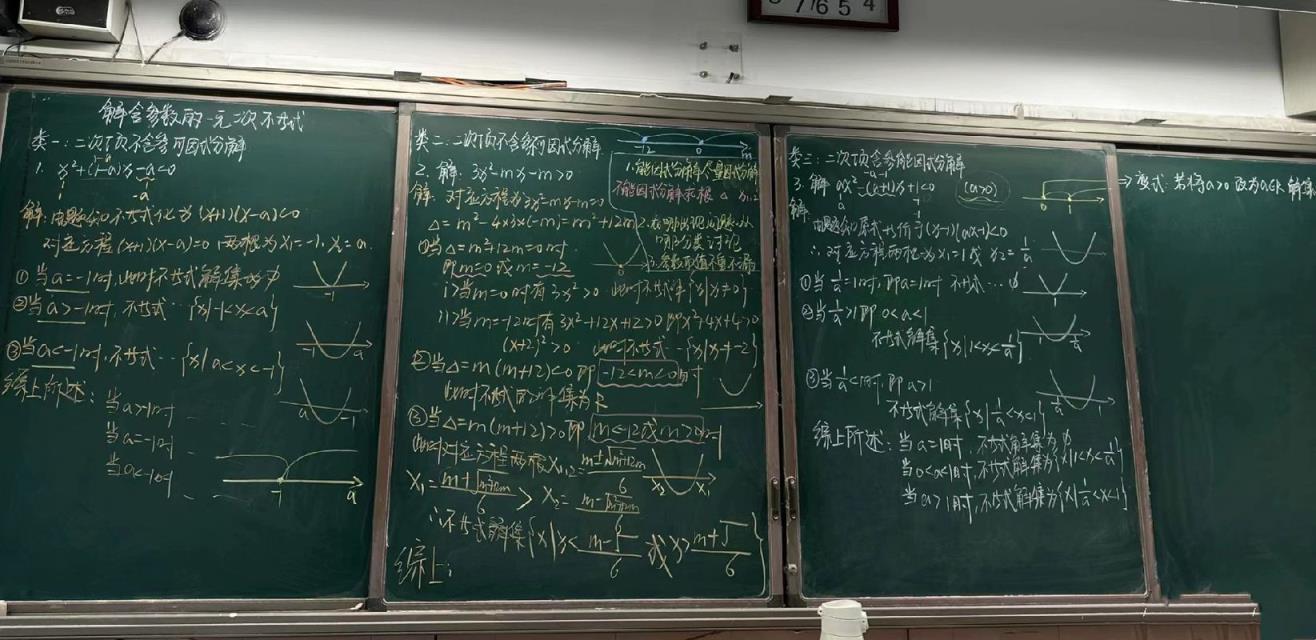 解含参数的一元二次不等式
类一:二次项不含参可因式分解
1. x²+(1-a)x-a<0
解:由题知不等式化为(x+1)(x-a)<0
对应方程(x+1)(x-a)=0,两根为x₁=-1, x₂=a.
①当a=-1时,此时不等式解集为∅
②当a>-1时,不等式…{x|-1<x<a}
③当a<-1时,不等式…{x|a<x<-1}
综上所述:当a>-1时
当a=-1时
当a<-1时
-1 a
类二:二次项不含参不可因式分解
-12 0 m
2. 解:3x²-mx-m>0
解:对应方程为3x²-mx-m=0
Δ=m²-4×3×(-m)=m²+12m
①当Δ=m²+12m=0时
即m=0或m=-12
i>当m=0时有3x²>0 此时不等式解{x|x≠0}
ii>当m=-12时有3x²+12x+12>0 即x²+4x+4>0
(x+2)²>0 此时不等式…{x|x≠-2}
②当Δ=m(m+12)<0即-12<m<0时
此时不等式的解集为R
③当Δ=m(m+12)>0即m<-12或m>0时
此时对应方程两根x₁,₂=m±√m²+12m/6
x₁=m+√m²+12m/6 > x₂=m-√m²+12m/6
x₂ x₁
∴不等式解集{x|x<m-√/6或x>m+√/6}
综上:
1.能因式分解尽量因式分解
不能因式分解求根 Δ
3.参数取值不重不漏
类三:二次项含参能因式分解
3. 解 ax²-(a+1)x+1<0 (a>0)
解:由题知原式等价于(x-1)(ax-1)<0
∴对应方程两根为x₁=1或x₂=1/a
①当1/a=1时,即a=1时 不等式…∅
②当1/a>1即0<a<1
不等式解集{x|1<x<1/a}
③当1/a<1时,即a>1
不等式解集{x|1/a<x<1}
综上所述:当a=1时,不等式解集为∅
当0<a<1时,不等式解集为{x|1<x<1/a}
当a>1时,不等式解集为{x|1/a<x<1}
0 1
→变式:若将a>0改为a∈R,解集